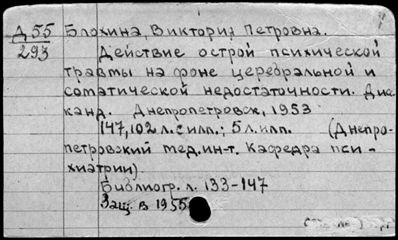 Д 55
293
Блохина, Виктория Петровна.
Действие острой психической
травмы на фоне церебральной и
соматической недостаточности. Дис.
канд. Днепропетровск, 1953
147, 102 л. с илл.; 5 л. илл. (Днепро-
петровский мед. ин-т. Кафедра пси-
хиатрии).
Библиогр. л. 133-147
Защ. в 1955